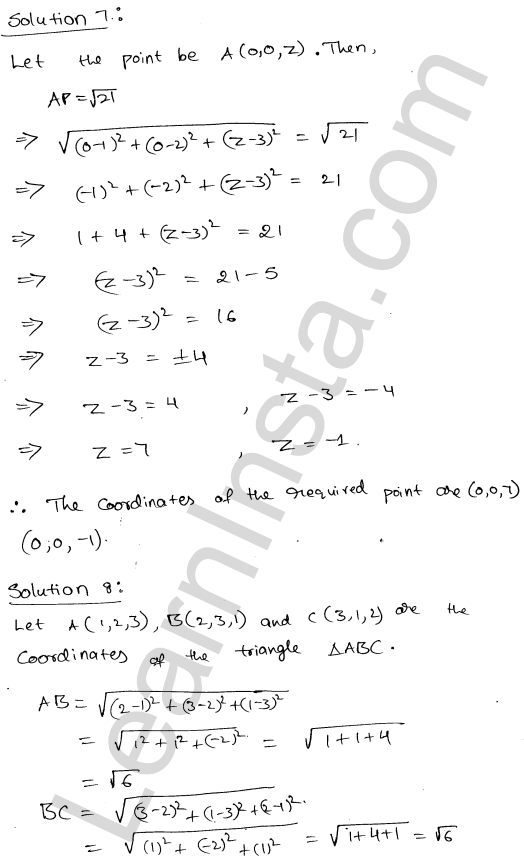 Solution 7:
Let the point be A(0,0,z). Then,
AP = √21
⇒ √(0-1)² + (0-2)² + (z-3)² = √21
⇒ (-1)² + (-2)² + (z-3)² = 21
⇒ 1 + 4 + (z-3)² = 21
⇒ (z-3)² = 21-5
⇒ (z-3)² = 16
⇒ z-3 = ±4
⇒ z-3 = 4 , z-3 = -4
⇒ z = 7 , z = -1.
∴ The coordinates of the required point are (0,0,7)
(0,0,-1).
Solution 8:
Let A(1,2,3), B(2,3,1) and C(3,1,2) are the
coordinates of the triangle ΔABC.
AB = √(2-1)² + (3-2)² + (1-3)²
= √1² + 1² + (-2)² = √1+1+4
= √6
BC = √(3-2)² + (1-3)² + (2-1)².
= √(1)² + (-2)² + (1)² = √1+4+1 = √6
LearnInsta.com